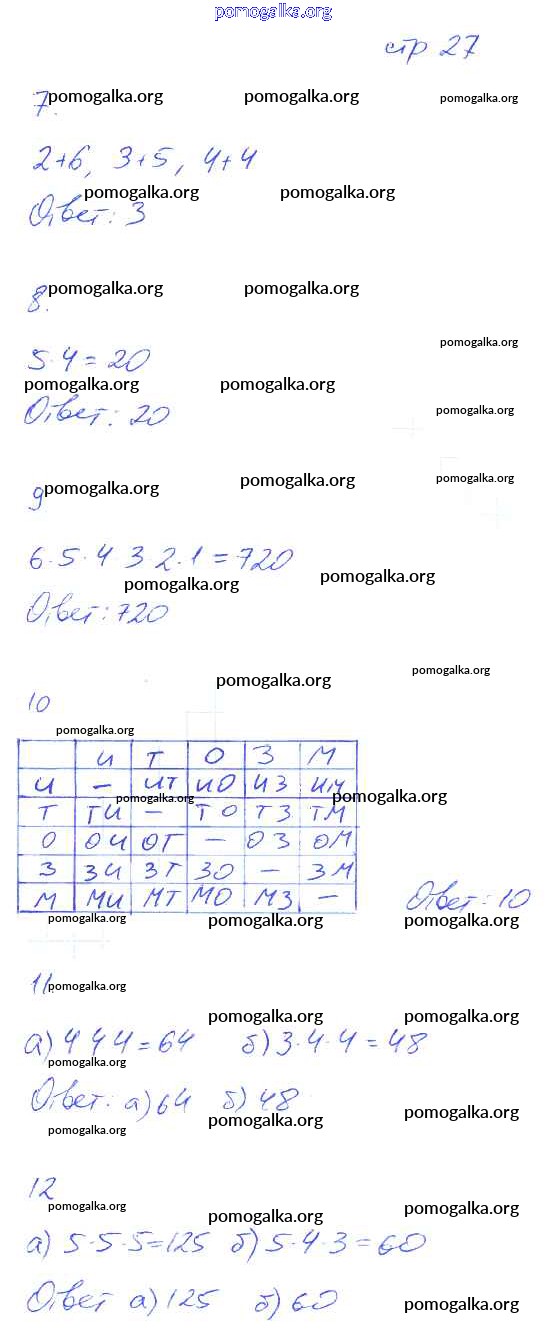 pomogalka.org
стр 27
pomogalka.org pomogalka.org pomogalka.org
7.
2+6, 3+5, 4+4
pomogalka.org pomogalka.org
Ответ: 3
pomogalka.org pomogalka.org
8.
pomogalka.org
5·4=20
pomogalka.org pomogalka.org
Ответ: 20 pomogalka.org
9 pomogalka.org pomogalka.org pomogalka.org
6·5·4 3 2·1=720
pomogalka.org pomogalka.org
Ответ: 720
pomogalka.org pomogalka.org
10
pomogalka.org
И Т О З М
И – ИТ ИО ИЗ ИМ
pomogalka.org pomogalka.org
Т ТИ – ТО ТЗ ТМ
О ОИ ОТ – ОЗ ОМ
З ЗИ ЗТ ЗО – ЗМ
М МИ МТ МО МЗ – Ответ: 10
pomogalka.org pomogalka.org pomogalka.org
11. pomogalka.org
pomogalka.org pomogalka.org
а) 4 4 4=64 б) 3·4·4=48
pomogalka.org
Ответ: а) 64 б) 48
pomogalka.org pomogalka.org pomogalka.org
12
pomogalka.org pomogalka.org pomogalka.org
а) 5·5·5=125 б) 5·4·3=60
Ответ а) 125 б) 60 pomogalka.org